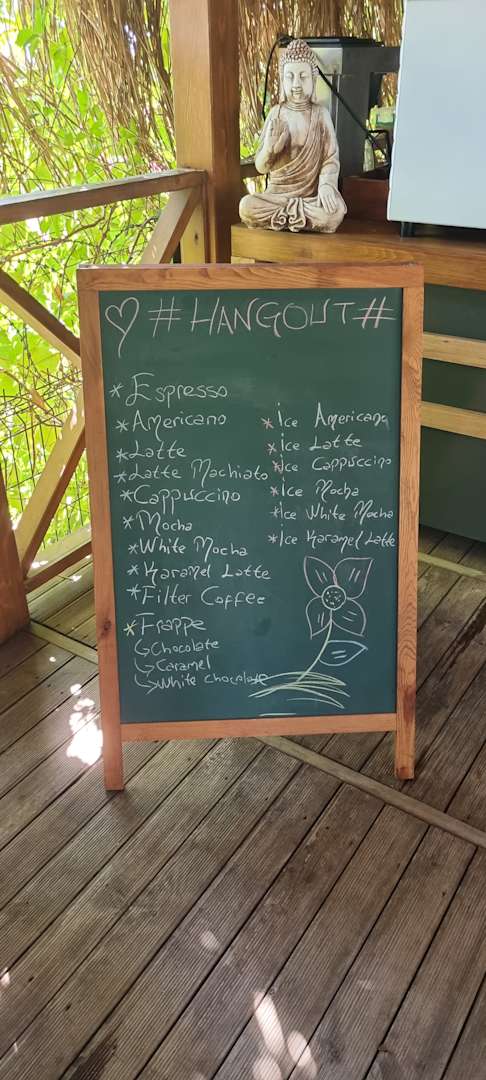 #HANGOUT#
*Espresso
*Americano
*Latte
*Latte Machiato
*Cappuccino
*Mocha
*White Mocha
*Karamel Latte
*Filter Coffee
*Frappe
Chocolate
Caramel
White chocolate
*ice Americano
*ice Latte
*ice Cappuccino
*ice Mocha
*Ice White Mocha
*Ice Karamel Latte